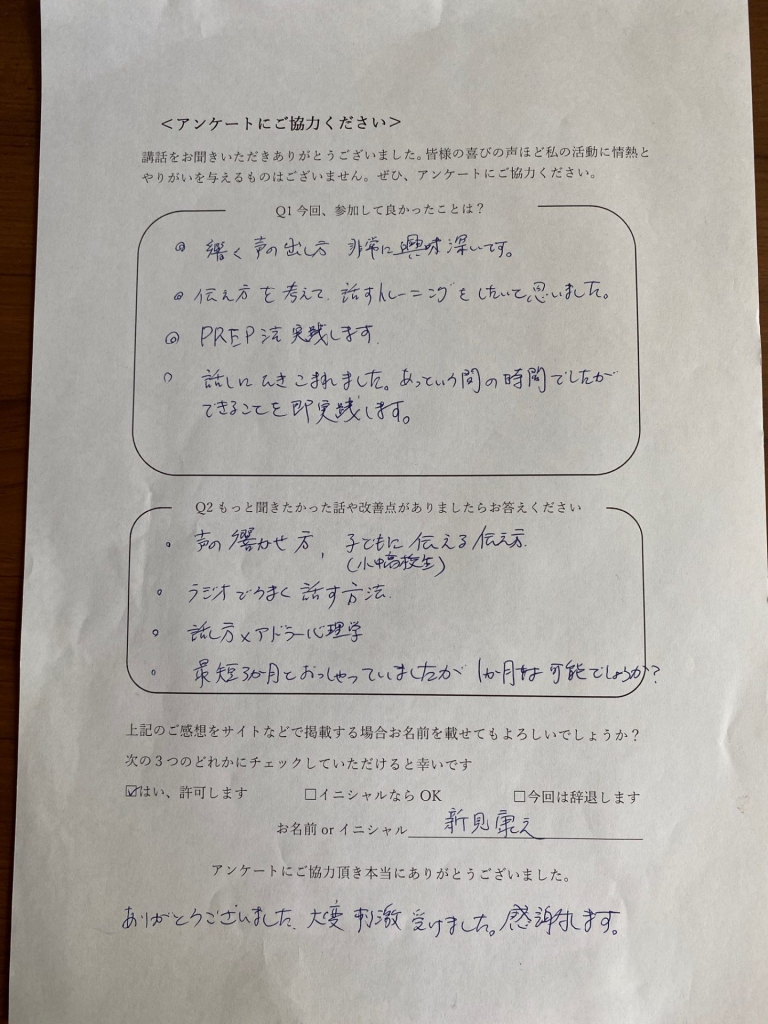 ＜アンケートにご協力ください＞
講話をお聞きいただきありがとうございました。皆様の喜びの声ほど私の活動に情熱と
やりがいを与えるものはございません。ぜひ、アンケートにご協力ください。
Q1 今回、参加して良かったことは？
◎ 響く声の出し方 非常に興味深いです。
◎ 伝え方を考えて、話すトレーニングをしたいと思いました。
◎ PREP法実践します.
○ 話しにひきこまれました。あっという間の時間でしたが
できることを即実践します。
Q2 もっと聞きたかった話や改善点がありましたらお答えください
○ 声の響かせ方, 子どもに伝える伝え方.
(小中高校生)
○ ラジオでうまく話す方法.
○ 話し方×アドラー心理学
○ 最短3か月とおっしゃっていましたが 1か月は可能でしょうか?
上記のご感想をサイトなどで掲載する場合お名前を載せてもよろしいでしょうか？
次の３つのどれかにチェックしていただけると幸いです
☑はい、許可します □イニシャルなら OK □今回は辞退します
お名前 or イニシャル 新見康之
アンケートにご協力頂き本当にありがとうございました。
ありがとうございました. 大変刺激受けました。感謝します。